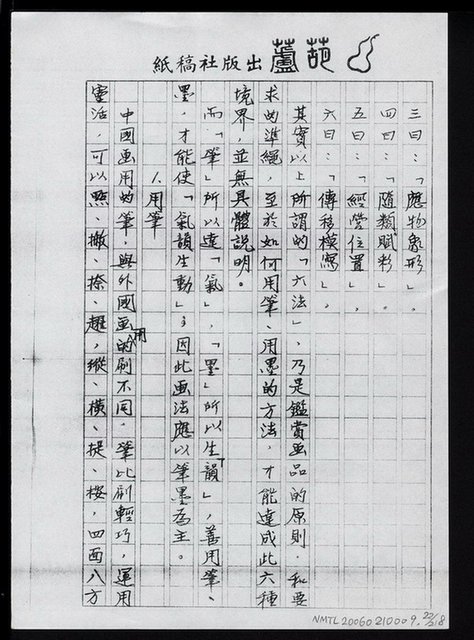 葫蘆出版社稿紙
三曰：「應物象形」，
四曰：「隨類賦彩」，
五曰：「經營位置」，
六曰：「傳移模寫」。
其實以上所謂的「六法」，乃是鑑賞畫品的原則，和要
求的準繩，至於如何用筆、用墨的方法，才能達成此六種
境界，並無具體說明。
而「筆」所以達「氣」，「墨」所以生「韻」，善用筆、
墨，才能使「氣韻生動」；因此画法應以筆墨為主。
1.用筆
中國画用的筆，與外國画用的刷不同，筆比刷輕巧，運用
靈活，可以點、撇、捺、趯，縱、橫、提、按，四面八方
NMTL20060210009.22/218